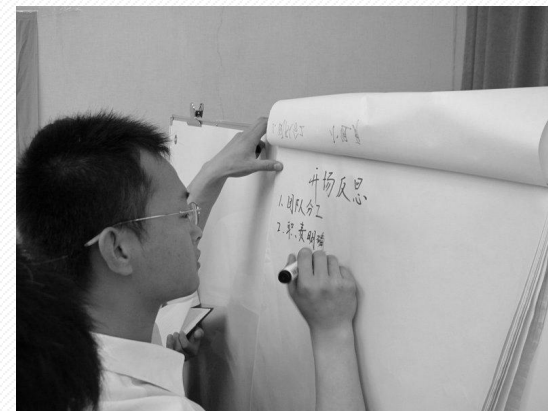 开场反思
1、团队分工
2、职责明确